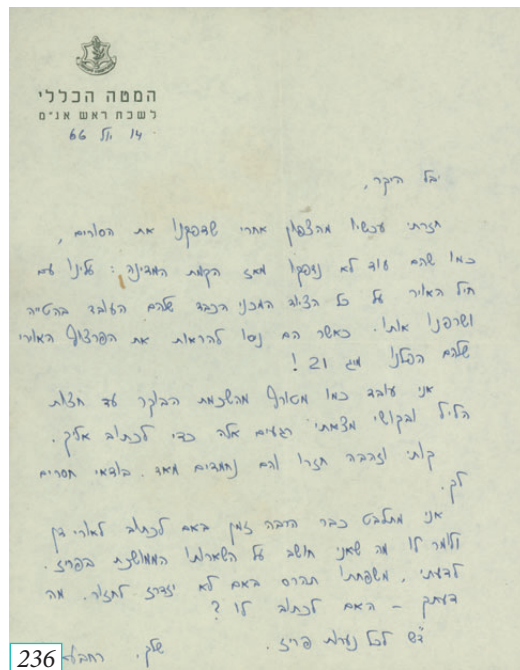 המטה הכללי
לשכת ראש אג"ם
14 יולי 66
יבל היקר,
חזרתי עכשיו מהצפון אחרי שדפקנו את הסורים,
כמו שהם עוד לא נדפקו מאז הקמת המדינה: עלינו עם
חיל האויר על כל הציוד המכני הכבד שלהם העובד בהטייה
ושרפנו אותו. כאשר הם נסו להראות את הפרצוף האוירי
שלהם הפלנו מיג 21!
אני עובד כמו מטורף מהשכמת הבוקר עד חצות
הליל ובקושי מצאתי רגעים אלה כדי לכתוב אליך.
קותי וזהבה חזרו והם נחמדים מאד. בודאי חסרים
לך.
אני מתלבט כבר הרבה זמן באם לכתוב לאורי דן
ולומר לו מה שאני חושב על השארותו הממושכת בפריז.
לדעתי, משפחתו תהרס באם לא יזדרז לחזור. מה
דעתך – האם לכתוב לו?
ד"ש לכל נערות פריז.
שלך, רחבעם
236